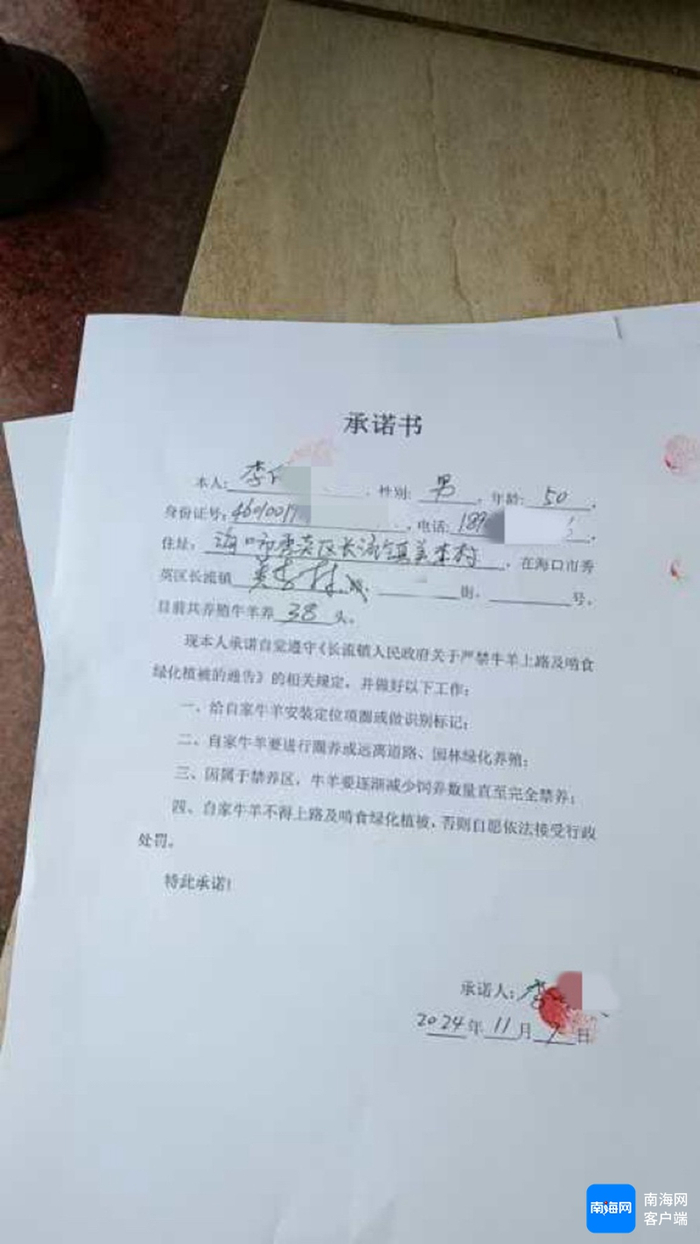 承诺书
本人: 李 , 性别: 男 , 年龄: 50 ,
身份证号: 4601001 , 电话: 189 ,
住址: 海口市秀英区长流镇美李村 , 在海口市秀
英区长流镇 美李村 街, 号,
目前共养殖牛羊养 38 头。
现本人承诺自觉遵守《长流镇人民政府关于严禁牛羊上路及啃食
绿化植被的通告》的相关规定，并做好以下工作：
一、给自家牛羊安装定位项圈或做识别标记；
二、自家牛羊要进行圈养或远离道路、园林绿化养殖；
三、因属于禁养区，牛羊要逐渐减少饲养数量直至完全禁养；
四、自家牛羊不得上路及啃食绿化植被，否则自愿依法接受行政
处罚。
特此承诺！
承诺人: 李
2024年11月 日
南海网
南海网
客户端